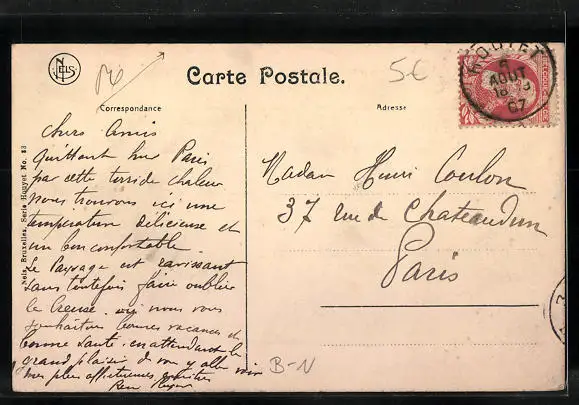 NELS
Carte Postale.
5€
Correspondance
Adresse
HOUYET
5
AOUT
18
07
Nels, Bruxelles, Serie Houyet No. 23
Chers Amis
Quittant hier Paris
par cette torride chaleur
nous trouvons ici une
température délicieuse et
un bon confortable
Le Paysage est ravissant
sans toutefois faire oublier
la Creuse. nous vous
souhaitons bonnes vacances et
bonne santé, en attendant le
grand plaisir de vous y aller voir
mes plus affectueuses
Madame Henri Coulon
37 rue de Chateaudun
Paris
B-N